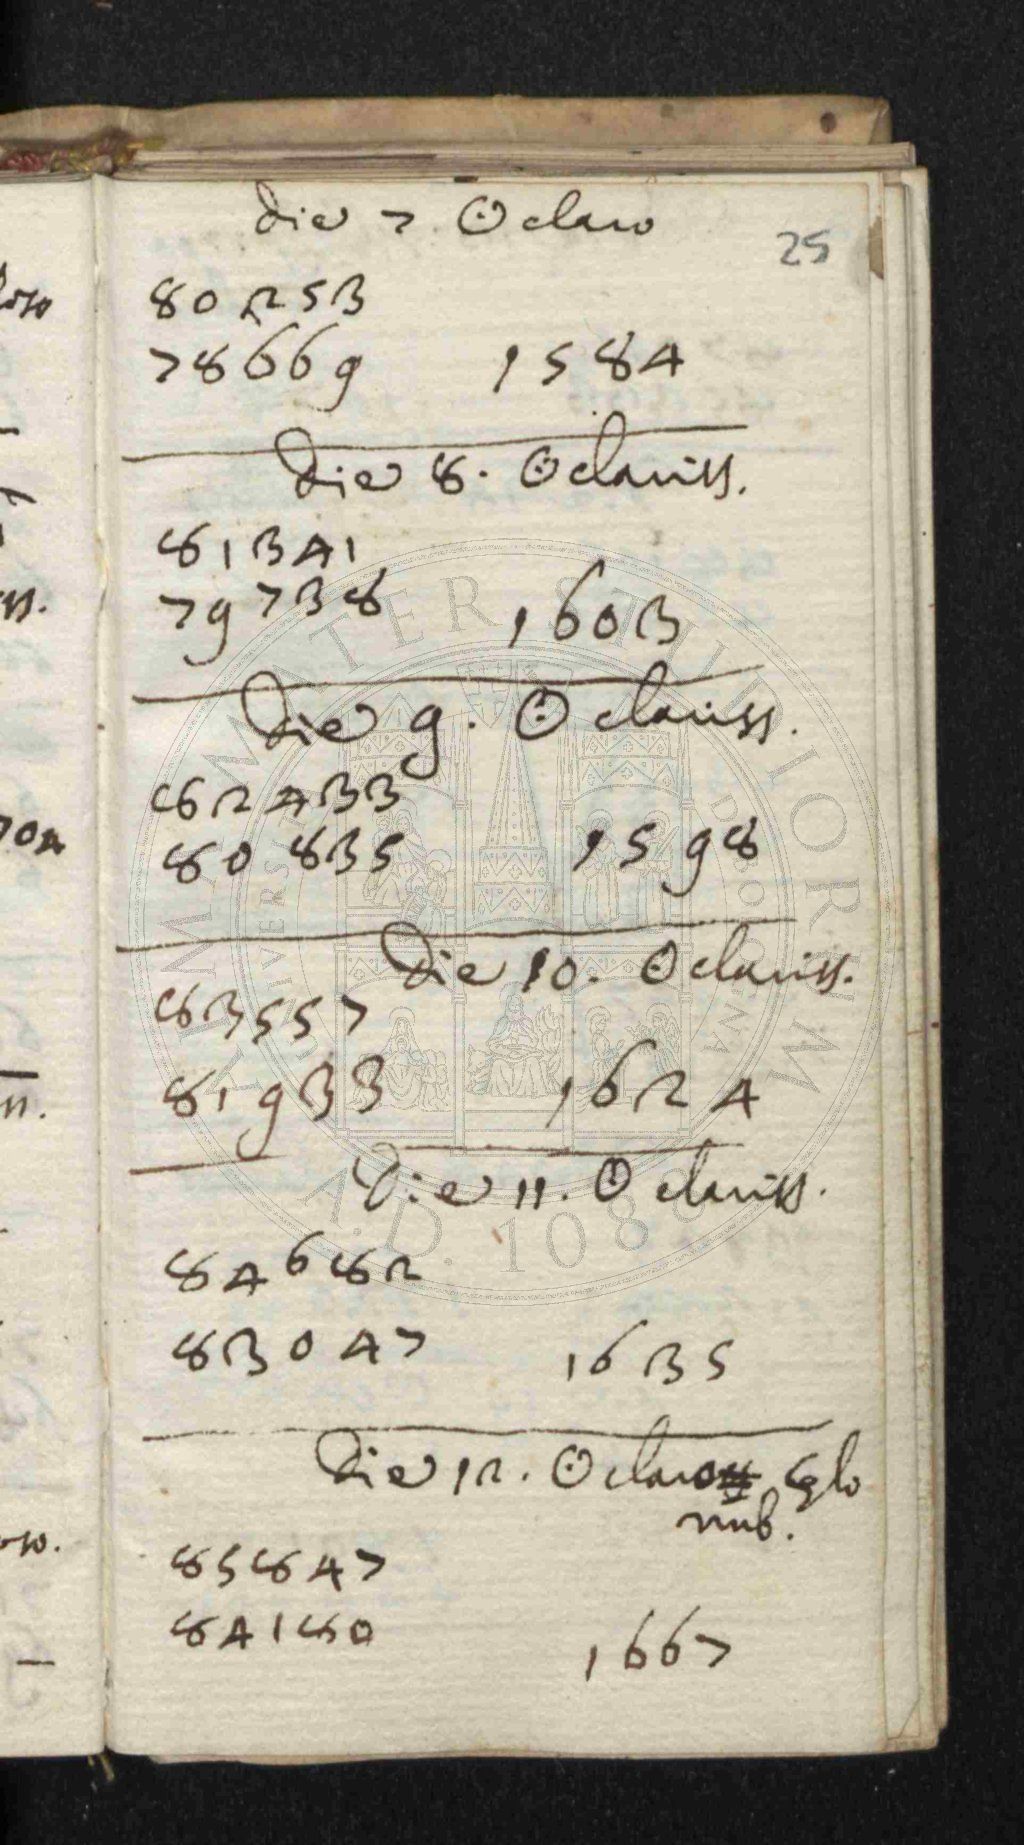 die 7. ☉ claro
25
80253
78669 1584
die 8. ☉ clariss.
81341
79738 1603
die 9. ☉ clariss.
82433
80835 1598
die 10. ☉ clariss.
83557
81933 1624
die 11. ☉ clariss.
84682
83047 1635
die 12. ☉ claro cælo
nub.
85847
84180
1667
ALMA MATER STUDIORUM
A.D. 1088